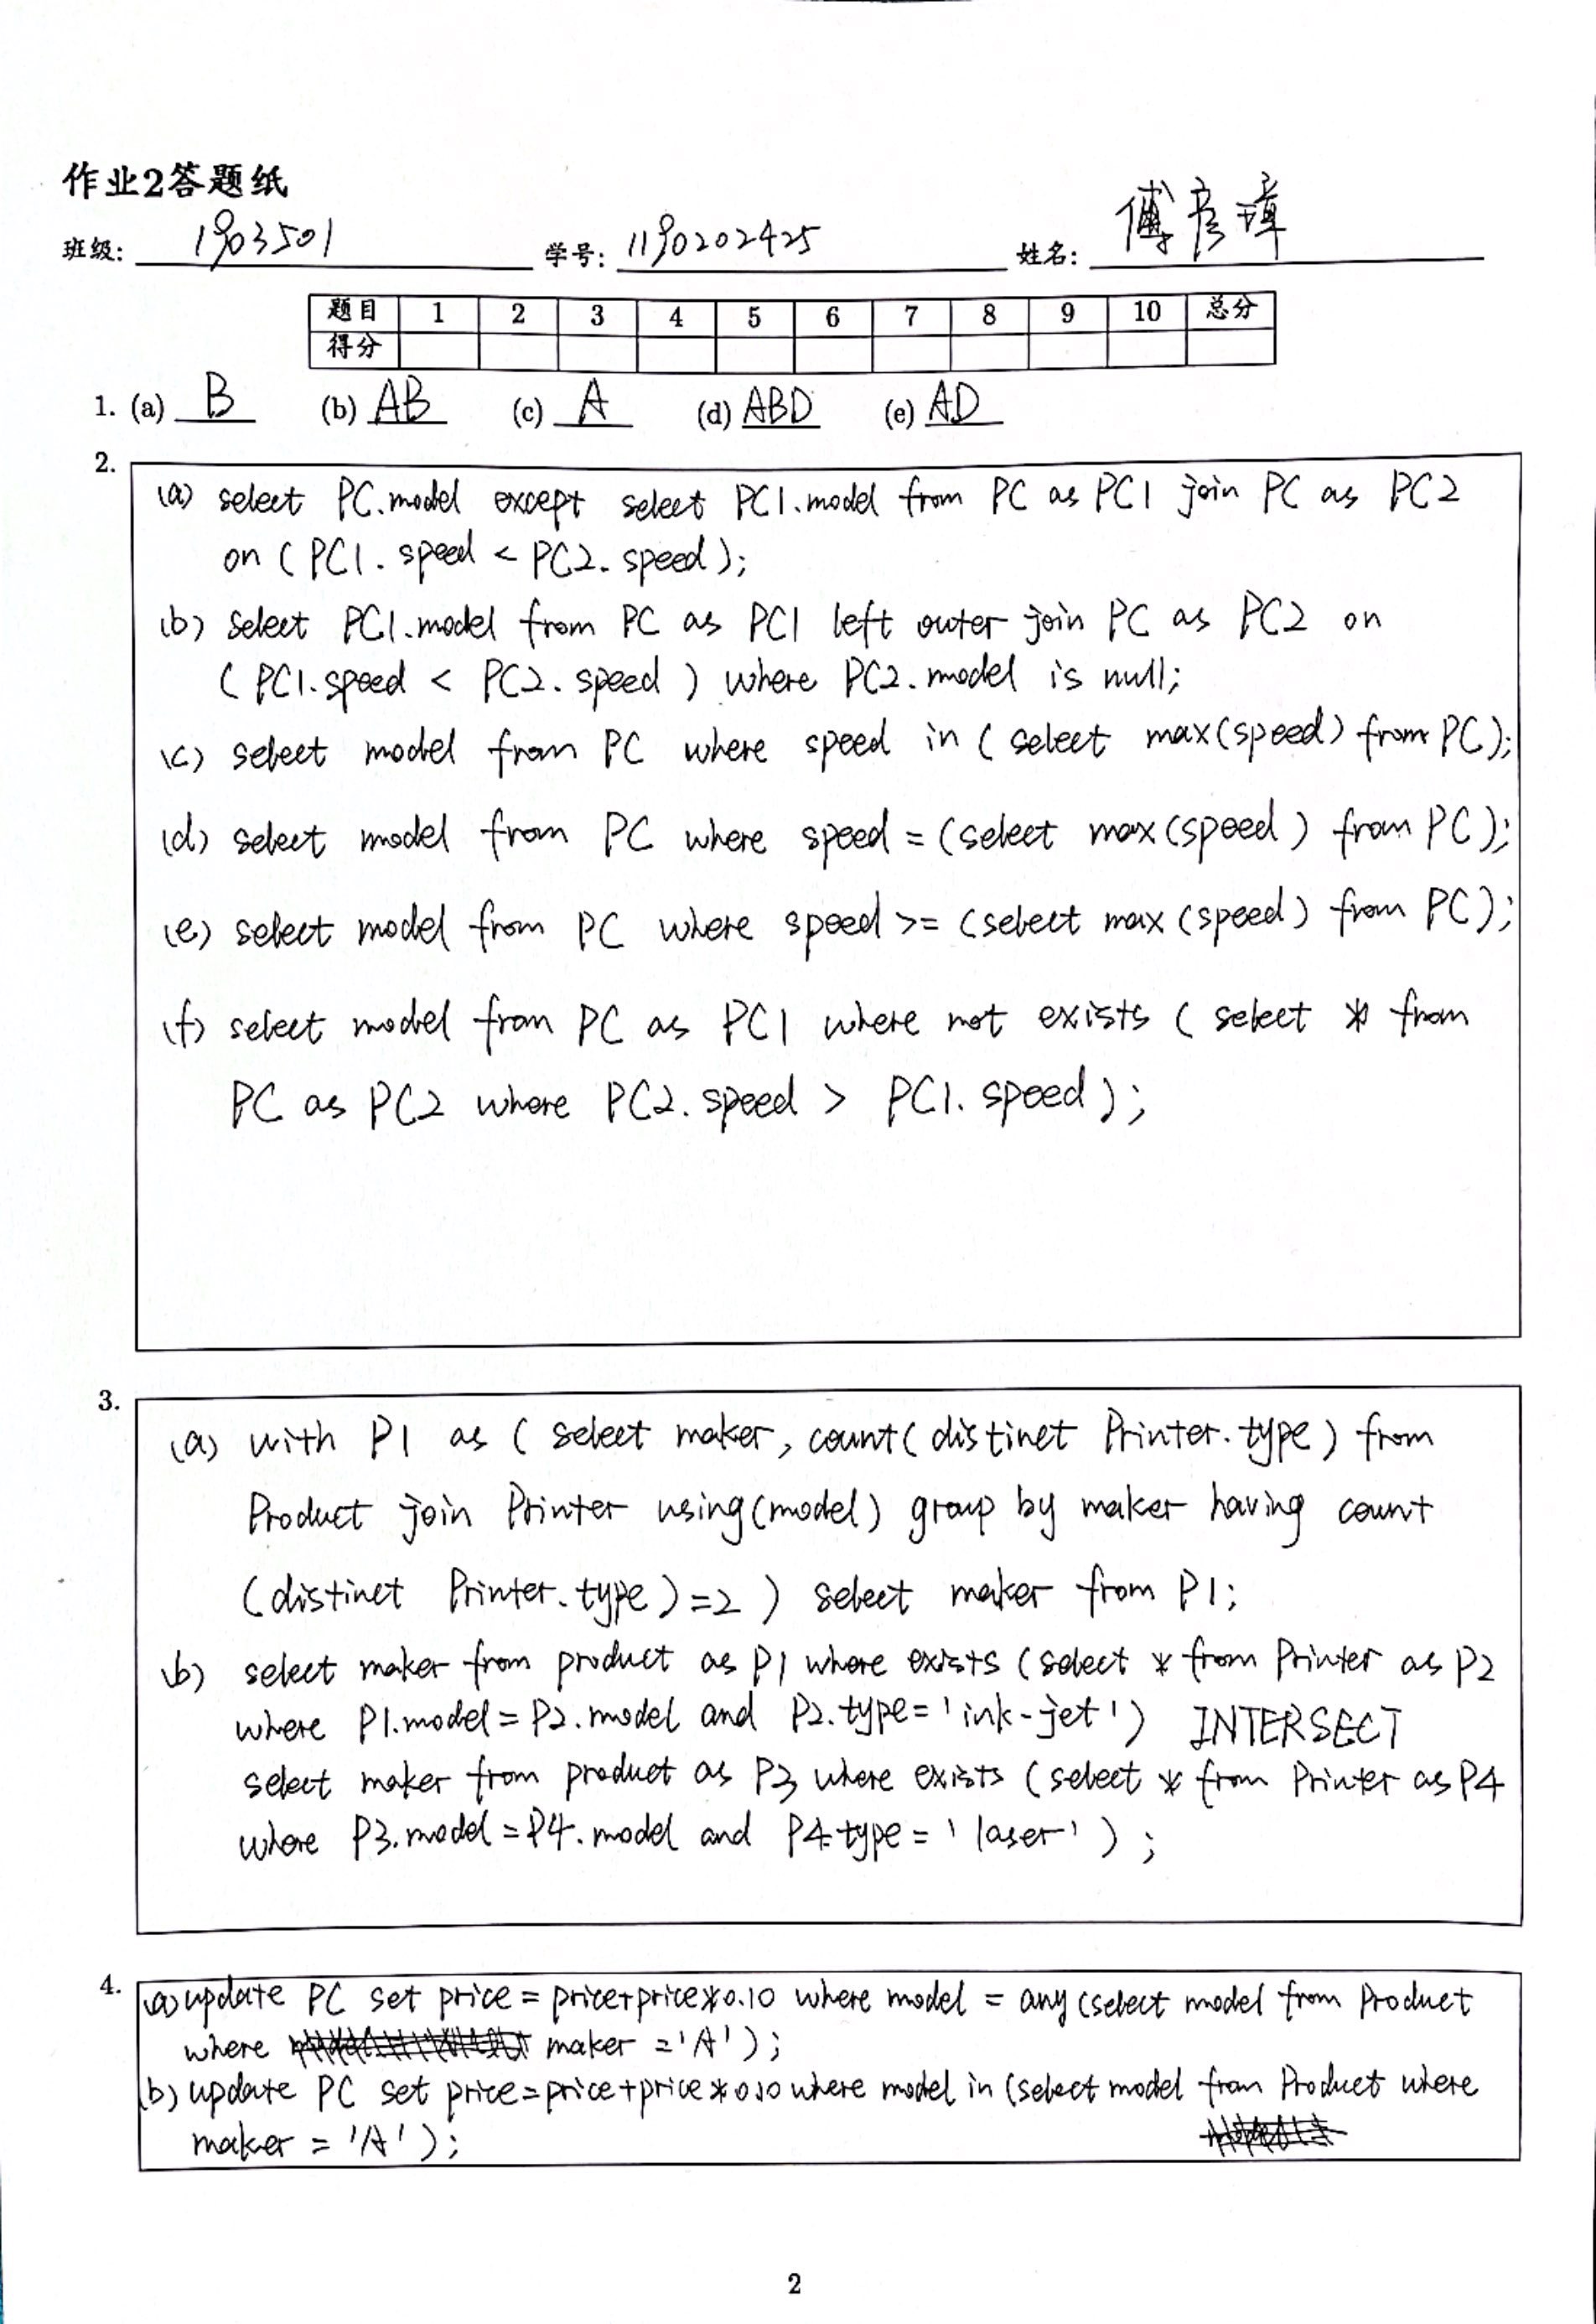 作业2答题纸
班级: 1903501 学号: 1190202425 姓名: 傅彦璋
题目 1 2 3 4 5 6 7 8 9 10 总分
得分
1. (a) B (b) AB (c) A (d) ABD (e) AD
2.
(a) select PC.model except select PC1.model from PC as PC1 join PC as PC2
on (PC1.speed < PC2.speed);
(b) select PC1.model from PC as PC1 left outer join PC as PC2 on
(PC1.speed < PC2.speed) where PC2.model is null;
(c) select model from PC where speed in (select max(speed) from PC);
(d) select model from PC where speed = (select max(speed) from PC);
(e) select model from PC where speed >= (select max(speed) from PC);
(f) select model from PC as PC1 where not exists (select * from
PC as PC2 where PC2.speed > PC1.speed);
3.
(a) with P1 as (select maker, count(distinct Printer.type) from
Product join Printer using(model) group by maker having count
(distinct Printer.type)=2) select maker from P1;
(b) select maker from product as P1 where exists (select * from Printer as P2
where P1.model=P2.model and P2.type='ink-jet') INTERSECT
select maker from product as P3 where exists (select * from Printer as P4
where P3.model=P4.model and P4.type='laser');
4.
(a) update PC set price=price+price*0.10 where model = any (select model from Product
where maker ='A');
(b) update PC set price=price+price*0.10 where model in (select model from Product where
maker = 'A');
2